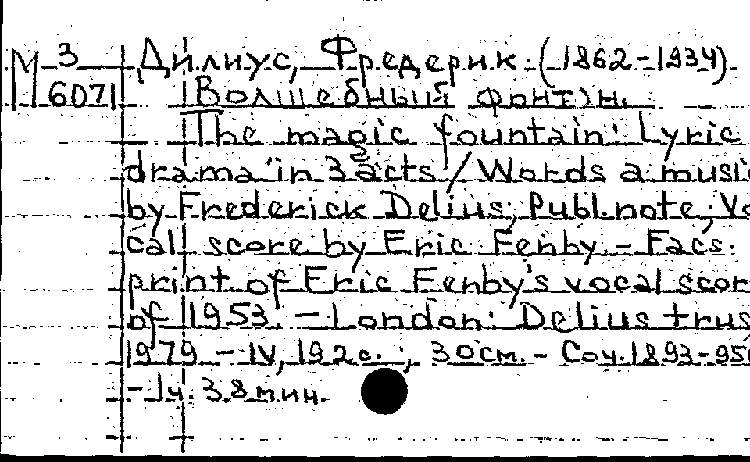 М 3 Дилиус, Фредерик (1862-1934).
6071 Волшебный фонтан.
The magic fountain: Lyric
drama in 3 acts / Words a. music
by Frederick Delius; Publ. note, Vo-
cal score by Eric Fenby. - Facs.
print of Eric Fenby's vocal score
of 1953. - London: Delius trust
1979 - IV, 192 с.; 30 см. - Соч. 1893-95
- 1 ч. 38 мин.